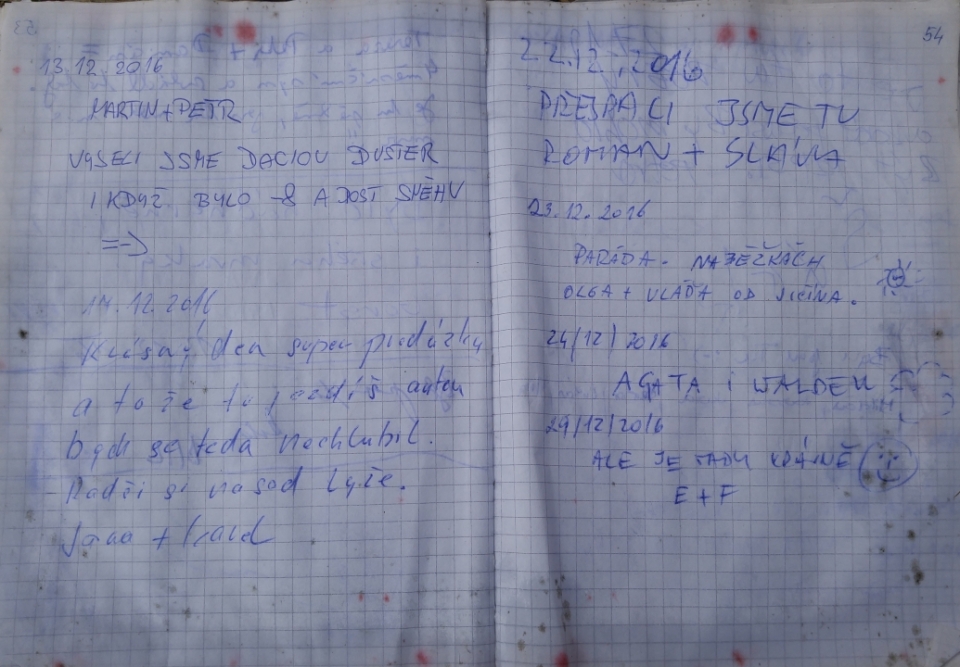 13.12.2016
MARTIN + PETR
VYJELI JSME DACIOU DUSTER
I KDYŽ BYLO -8 A DOST SNĚHU
=-)
14.12.2016
Krásný den super
a to že to jezdíš autem
bych se teda nechlubil.
Radši si nasaď lyže.
Jana +
54
22.12.2016
PŘESPALI JSME TU
ROMAN + SLÁVA
23.12.2016
PARÁDA. NA BĚŽKÁCH
OLGA + VLÁĎA OD JIČÍNA.
24/12/2016
AGATA I WALDEK
29/12/2016
ALE JE TADY KRÁSNĚ
E + F